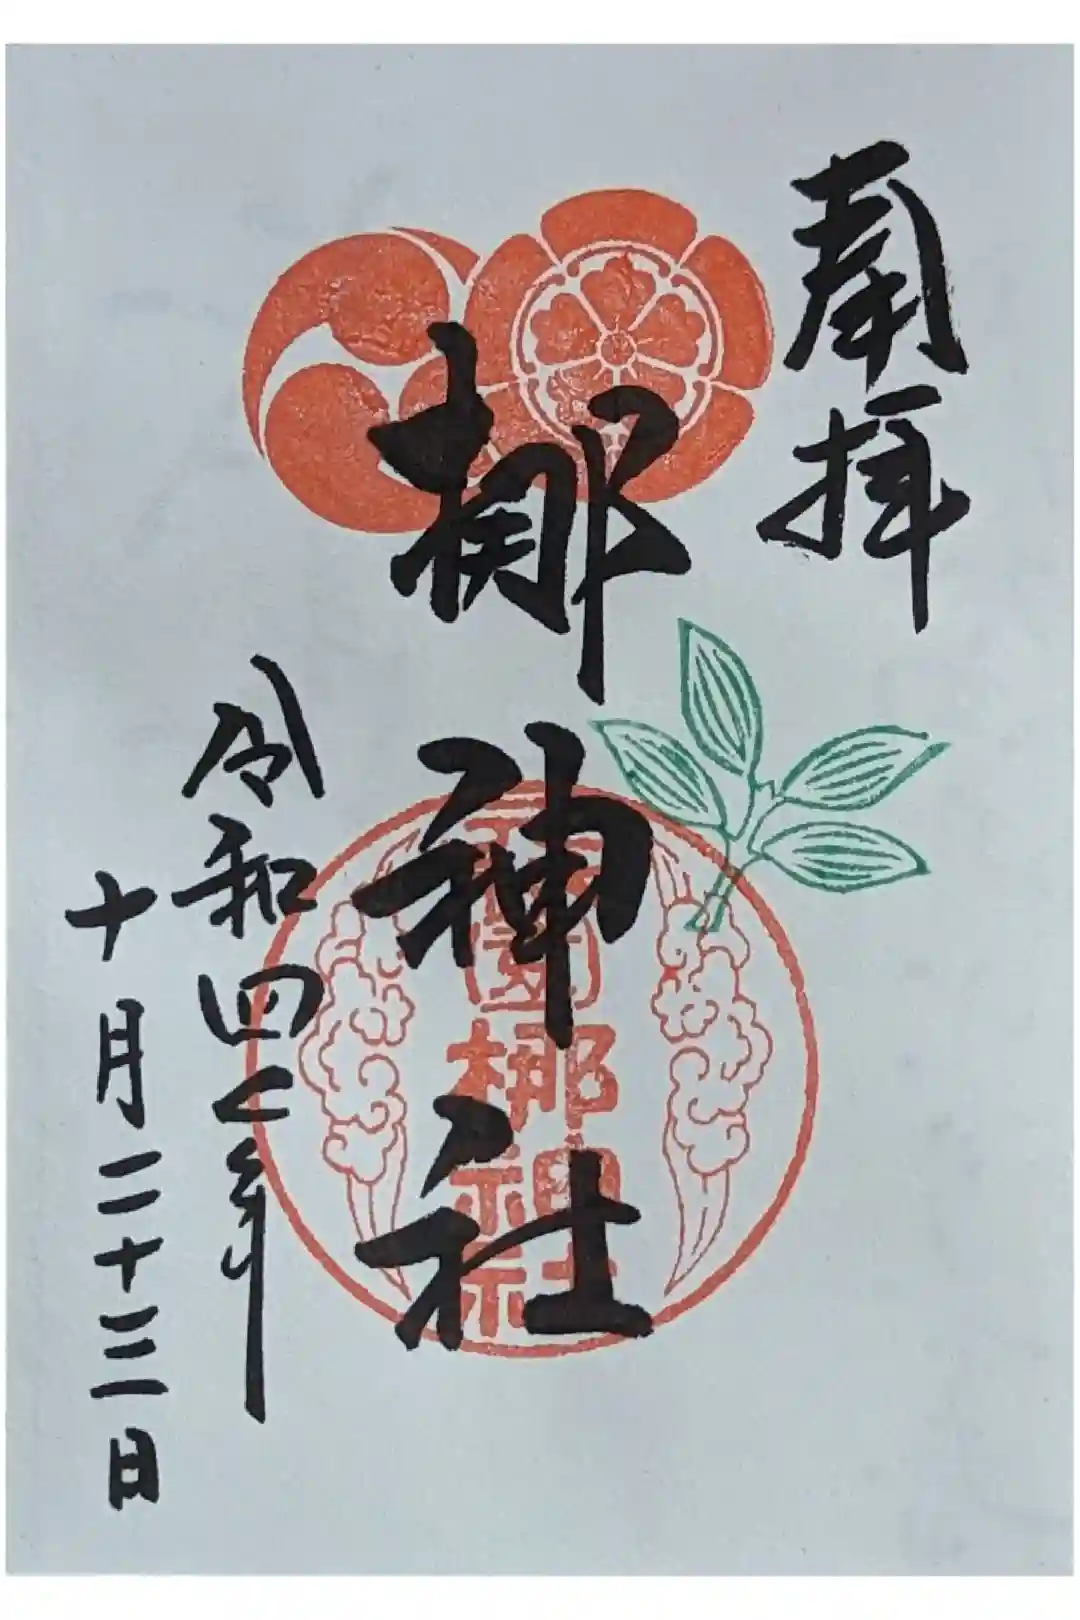 奉拝
梛神社
令和四年
十月二十三日
梛神社